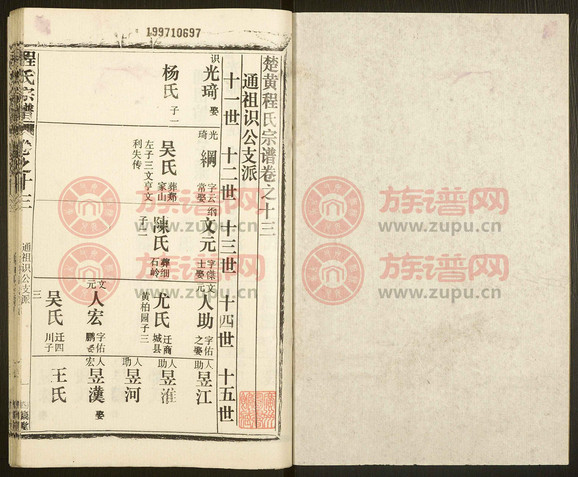 199710697
楚黄程氏宗谱卷之十三
通祖识公支派
十一世 十二世 十三世 十四世 十五世
识 光琦 娶
杨氏 子一
光琦 綱 字云常娶
吴氏 葬郷家山
左子三文亨文利失传
綱 文元 字傑士娶
陳氏 葬细石岭
子二
文元 人助 字佑之娶
尤氏 迁商城县
黄柏园子三
文元 人宏 字佑鹏娶
吴氏 迁四川子
人助 昱江
人助 昱淮
人助 昱河
人宏 昱漢 娶
王氏
程氏宗譜
卷之十三
通祖识公支派
三
族谱网
www.zupu.cn
族谱网
www.zupu.cn